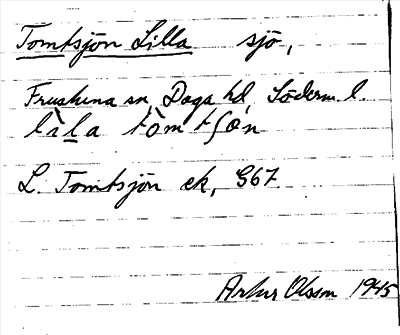 Tomtsjön Lilla sjö,
Frustuna sn, Daga hd, Söderm. l.
lìla tòmtʃøn
L. Tomtsjön ek, G67
Artur Olsson 1945